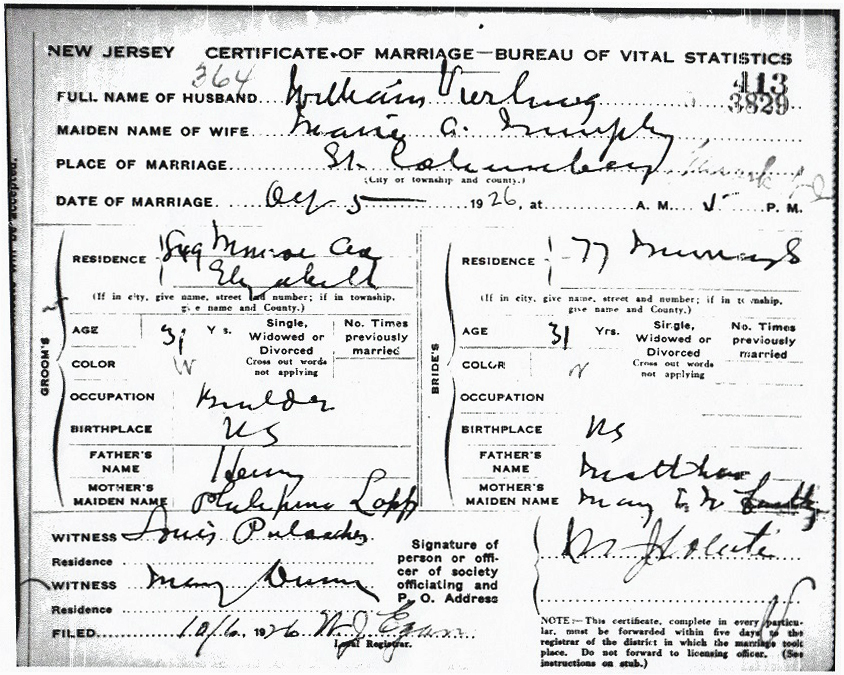 NEW JERSEY CERTIFICATE OF MARRIAGE—BUREAU OF VITAL STATISTICS
364
413
3829
FULL NAME OF HUSBAND William
MAIDEN NAME OF WIFE Marie A.
PLACE OF MARRIAGE St.
(City or township and county.)
DATE OF MARRIAGE 5 1926, at A. M. 5 P. M.
GROOM'S
RESIDENCE 849 Monroe Ave
Elizabeth
(If in city, give name, street and number; if in township, give name and County.)
AGE 31 Yrs. Single, Widowed or Divorced
Cross out words not applying
No. Times previously married
COLOR W
OCCUPATION Builder
BIRTHPLACE US
FATHER'S NAME Henry
MOTHER'S MAIDEN NAME Lopp
BRIDE'S
RESIDENCE 77 Murray S
(If in city, give name, street and number; if in township, give name and County.)
AGE 31 Yrs. Single, Widowed or Divorced
Cross out words not applying
No. Times previously married
COLOR W
OCCUPATION
BIRTHPLACE US
FATHER'S NAME Matthew
MOTHER'S MAIDEN NAME Mary
WITNESS Louis
Residence
WITNESS Mary Dunn
Residence
FILED 10/6 1926 W. J. Egan
Local Registrar.
Signature of person or officer of society officiating and P. O. Address
NOTE:—This certificate, complete in every particular, must be forwarded within five days to the registrar of the district in which the marriage took place. Do not forward to licensing officer. (See instructions on stub.)